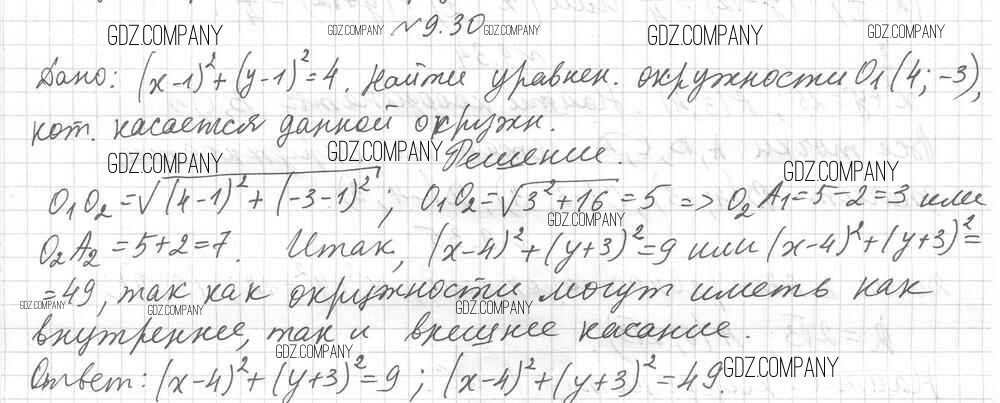 GDZ.COMPANY GDZ.COMPANY №9.30 GDZ.COMPANY GDZ.COMPANY GDZ.COMPANY
Дано: (x-1)²+(y-1)²=4. Найти уравнен. окружности O₁(4; -3),
кот. касается данной окружн.
GDZ.COMPANY GDZ.COMPANY Решение. GDZ.COMPANY
O₁O₂=√(4-1)²+(-3-1)²; O₁O₂=√3²+16=5 => O₂A₁=5-2=3 или
GDZ.COMPANY
O₂A₂=5+2=7. Итак, (x-4)²+(y+3)²=9 или (x-4)²+(y+3)²=
=49, так как окружности могут иметь как
GDZ.COMPANY GDZ.COMPANY GDZ.COMPANY
внутреннее, так и внешнее касание.
GDZ.COMPANY GDZ.COMPANY
Ответ: (x-4)²+(y+3)²=9; (x-4)²+(y+3)²=49.